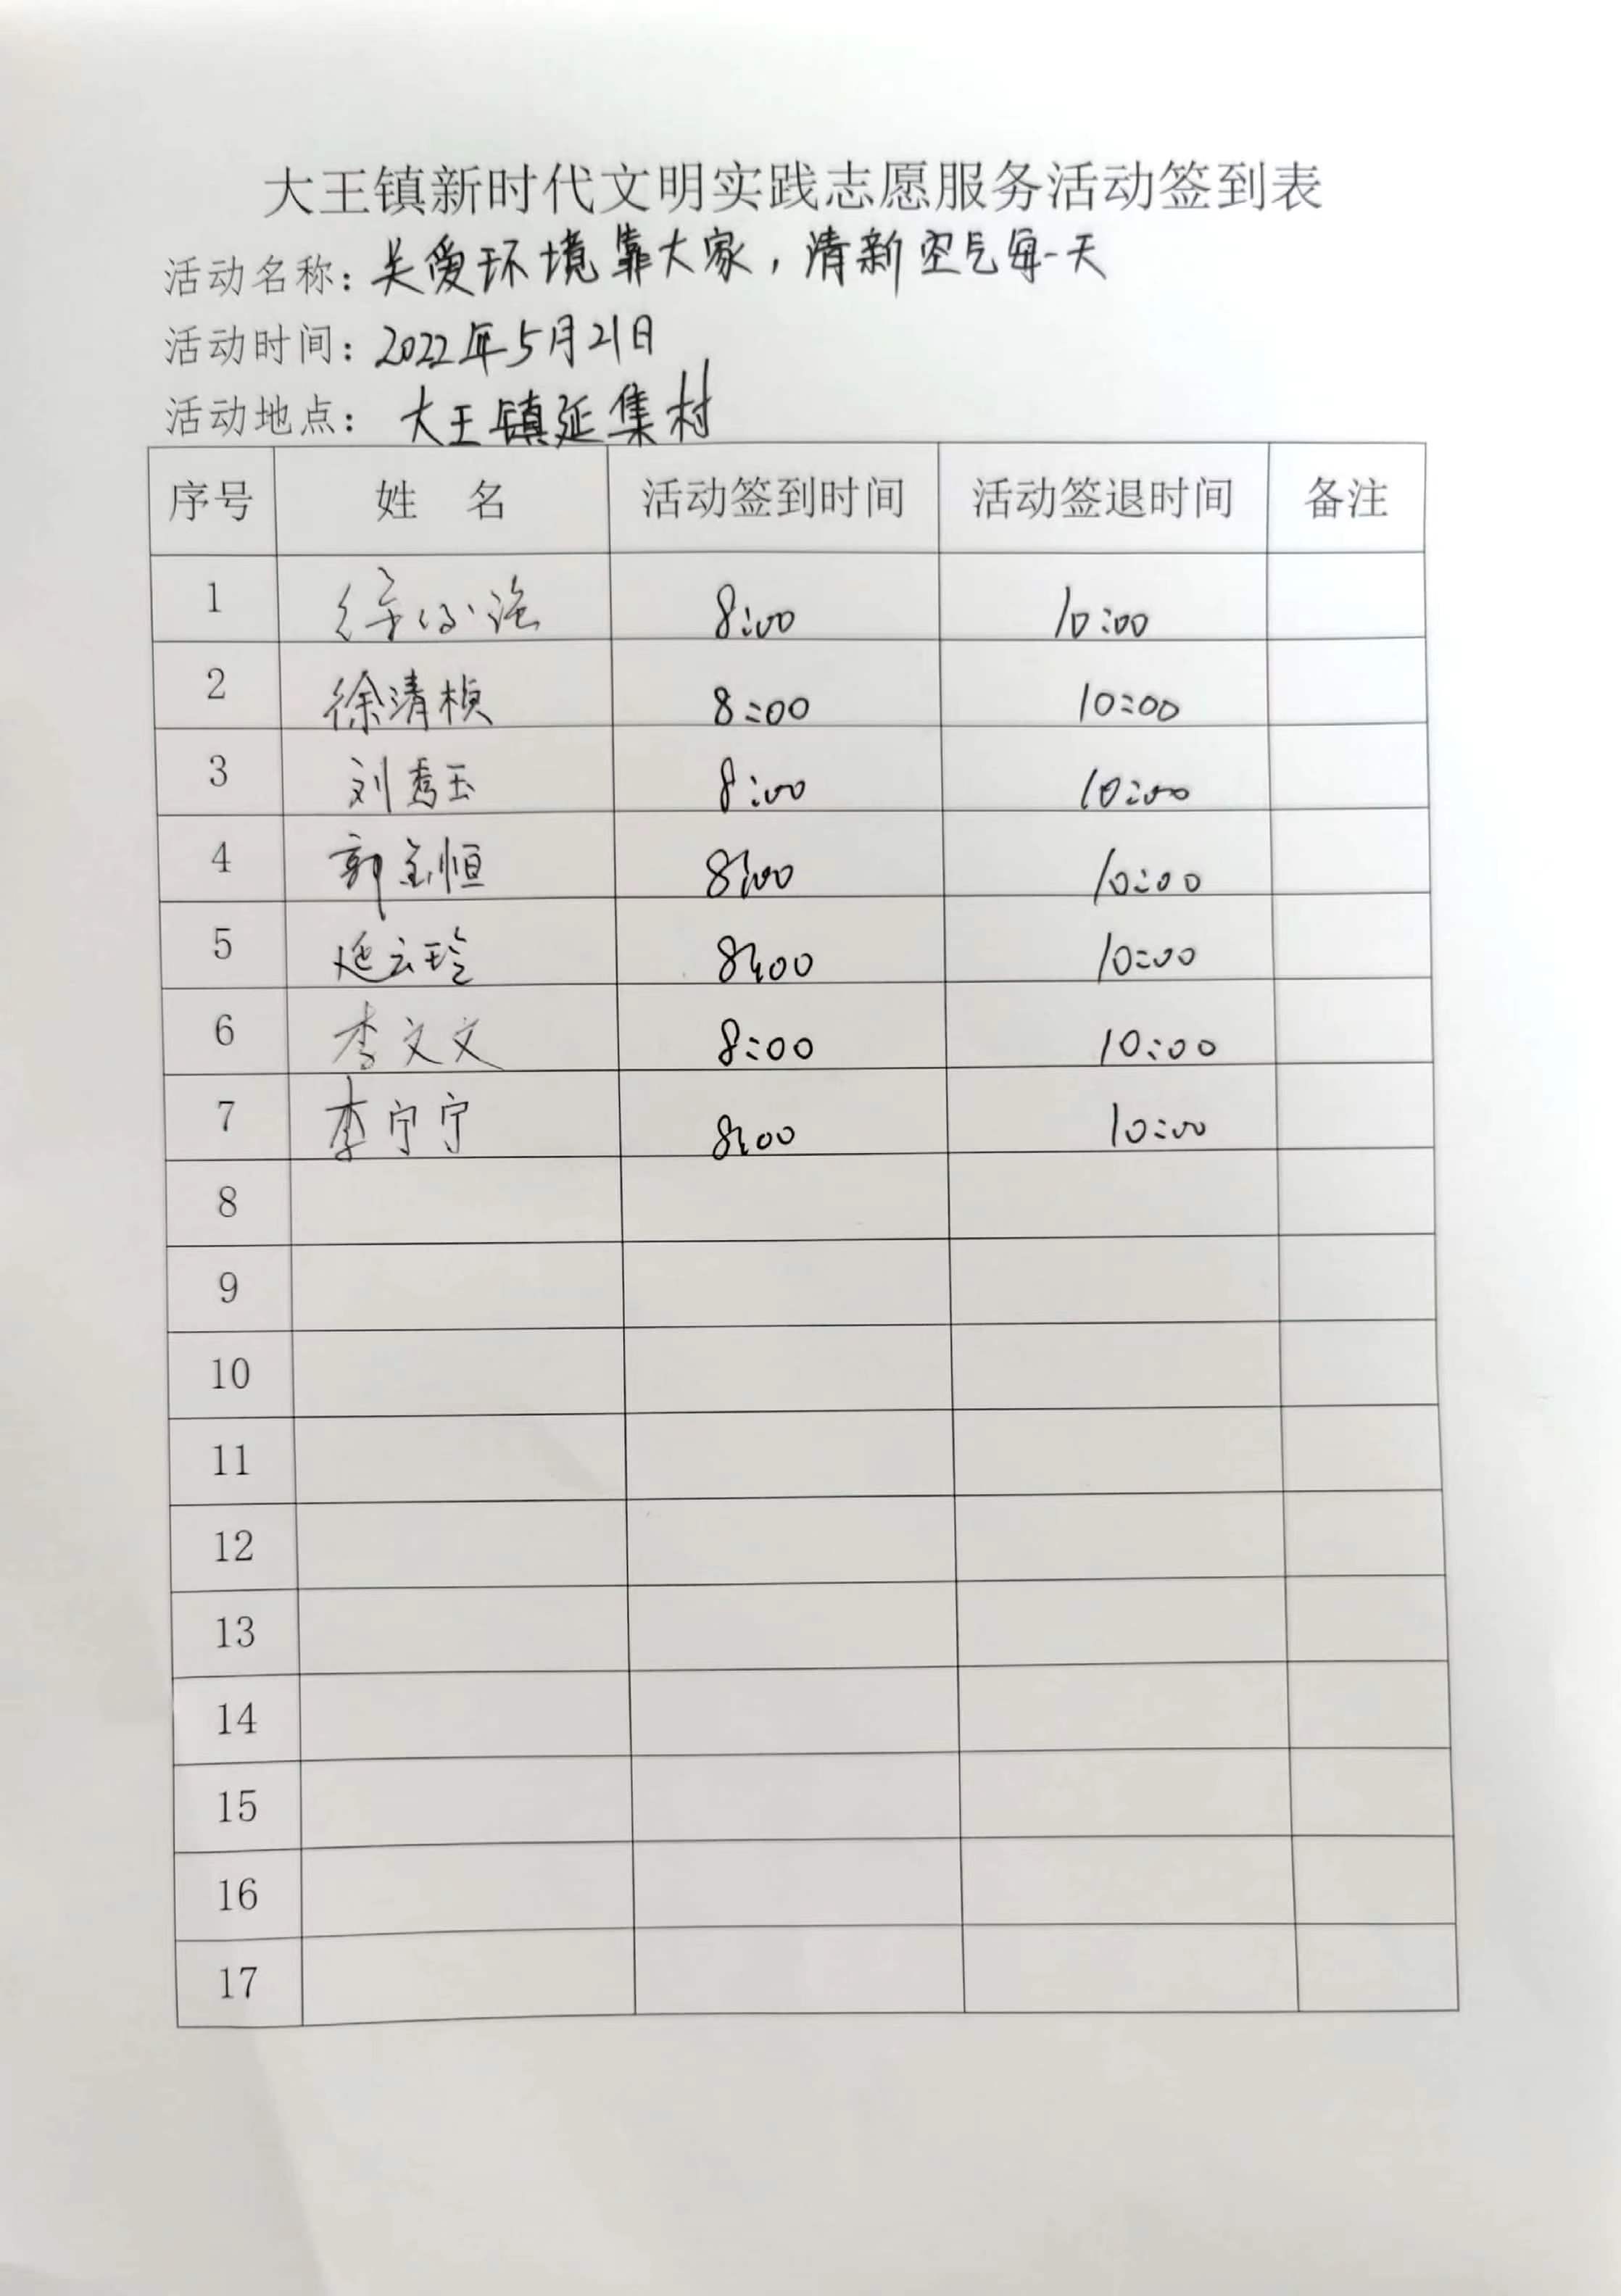 大王镇新时代文明实践志愿服务活动签到表
活动名称：关爱环境靠大家，清新空气每一天
活动时间：2022年5月21日
活动地点：大王镇延集村
序号 姓 名 活动签到时间 活动签退时间 备注
1 8:00 10:00
2 徐清桢 8:00 10:00
3 刘秀玉 8:00 10:00
4 郭金恒 8:00 10:00
5 延云玲 8:00 10:00
6 李文文 8:00 10:00
7 李宁宁 8:00 10:00
8
9
10
11
12
13
14
15
16
17